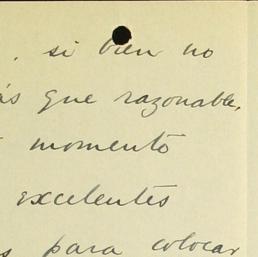 , si bien no
ás que razonable,
momento
excelentes
s para colocar